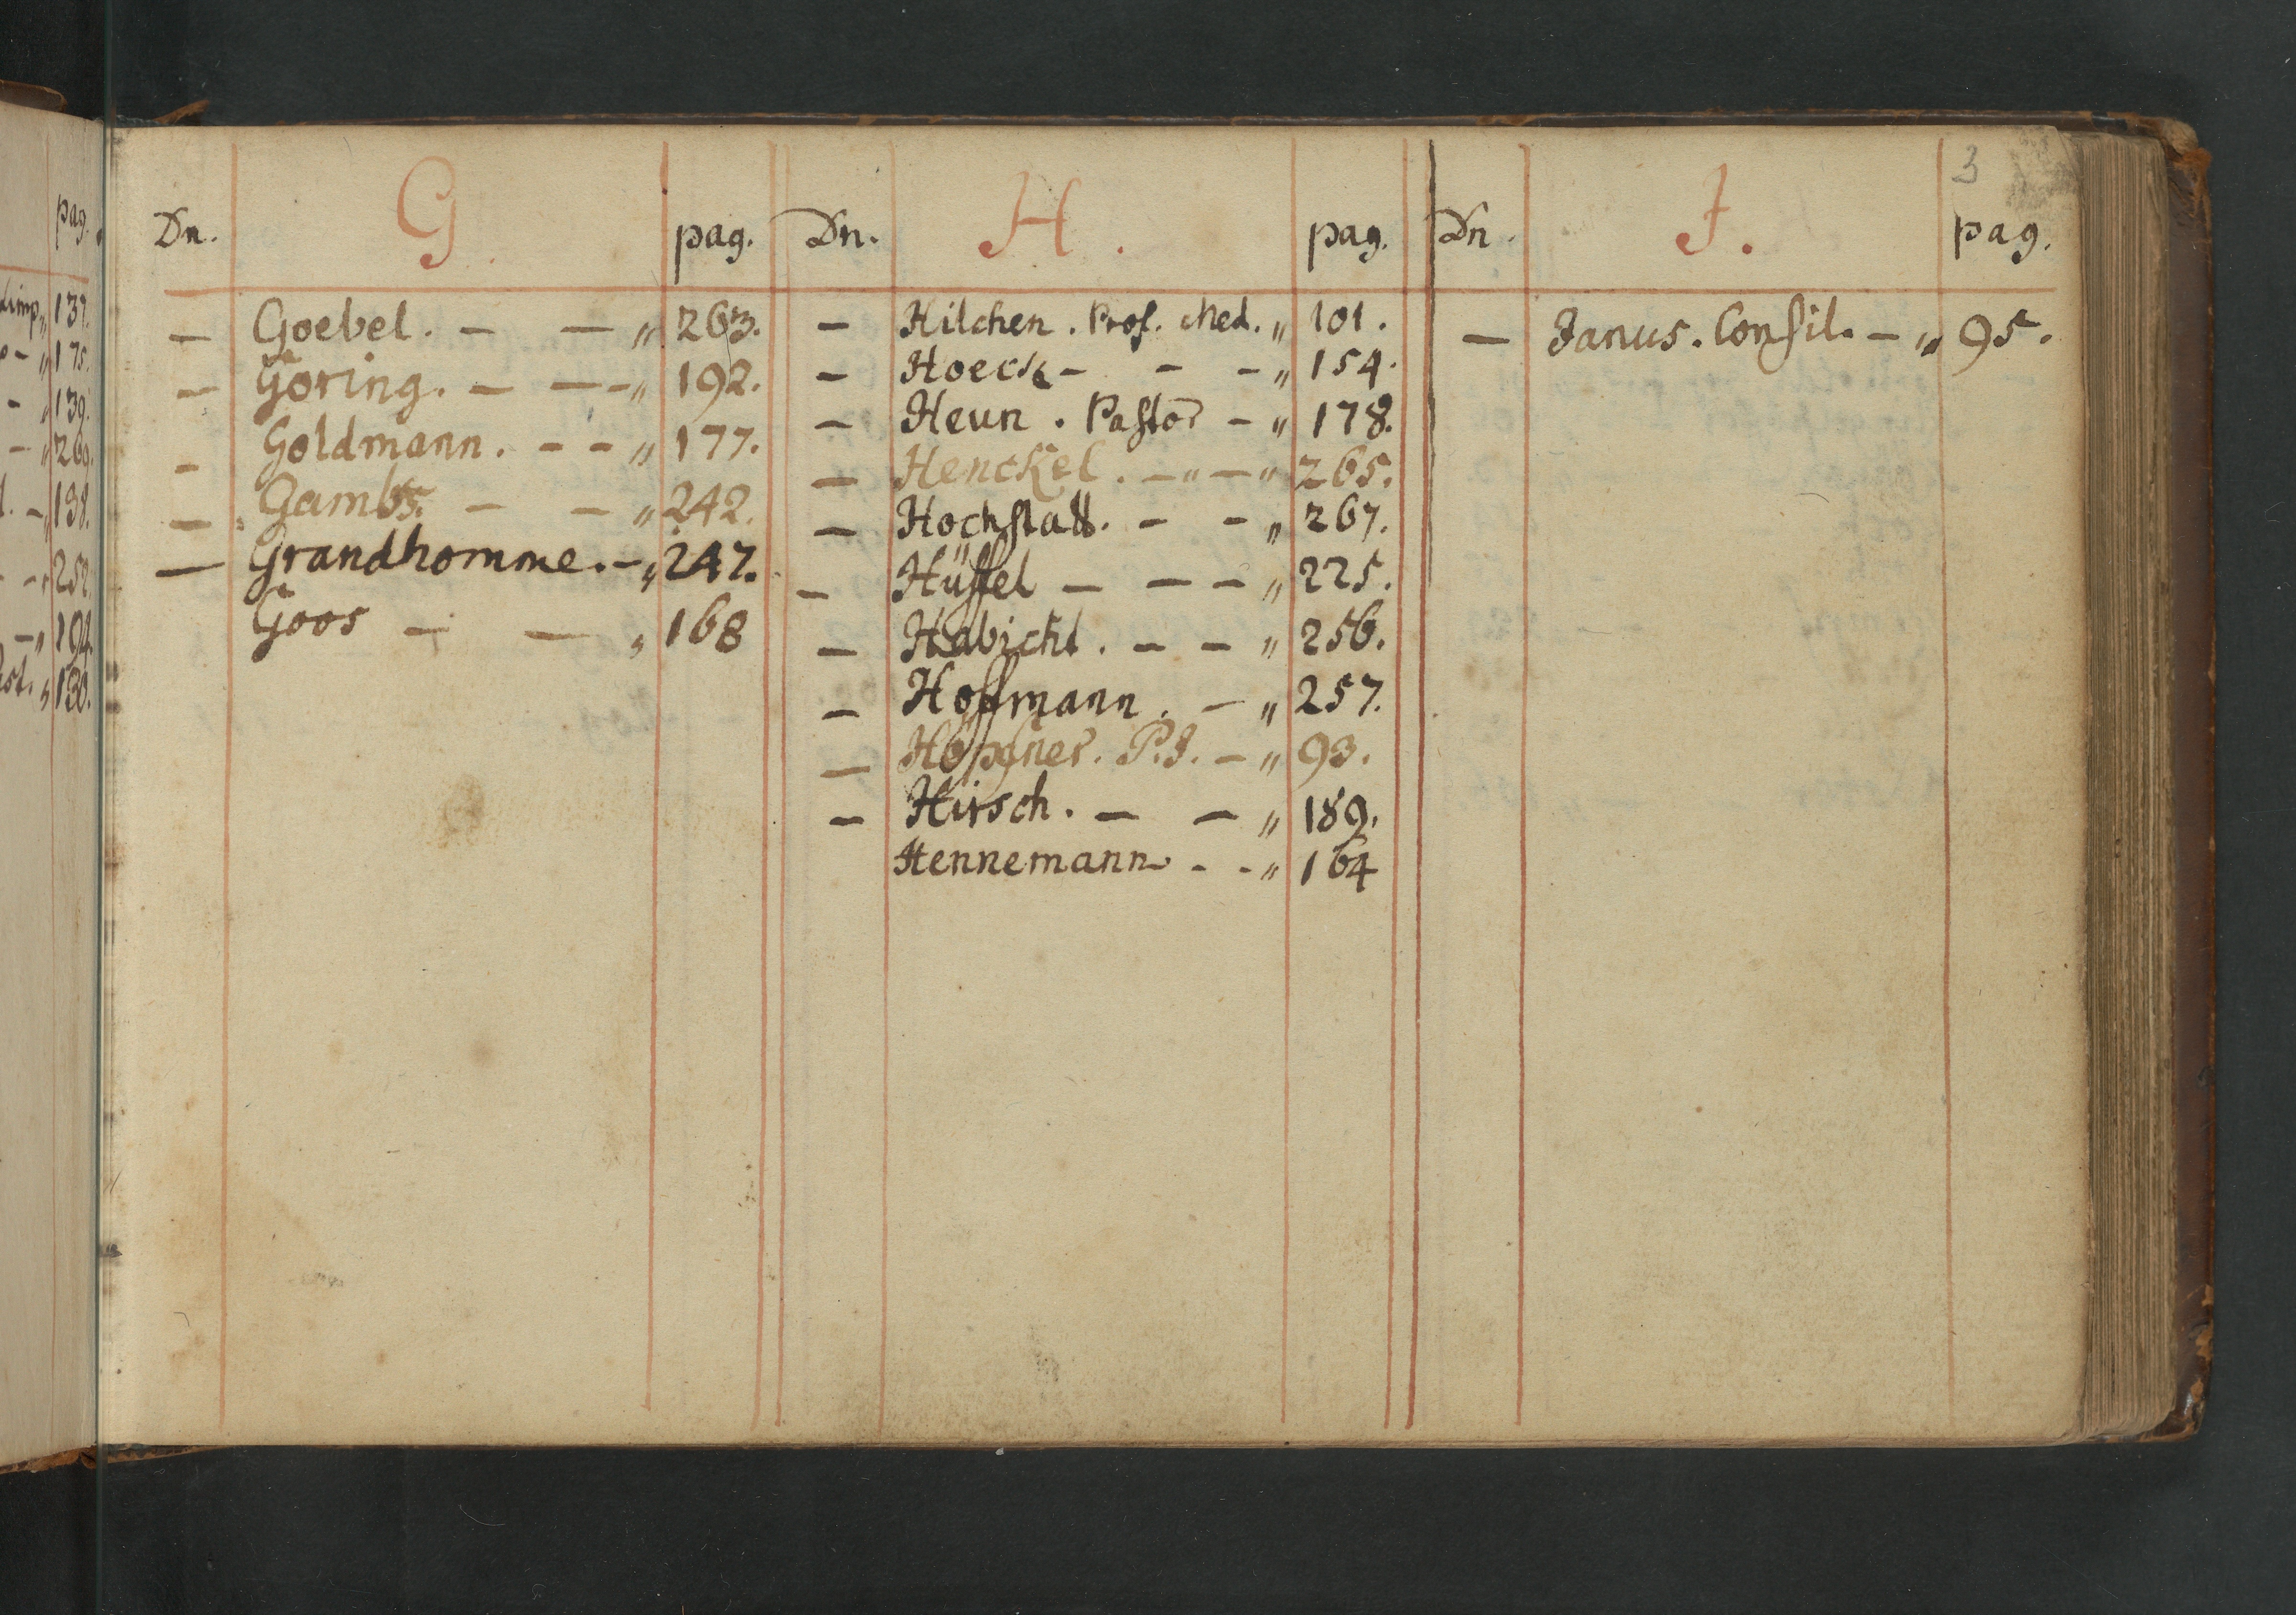 3
Dn. G. pag.
— Goebel. — — „ 263.
— Göring. — — - „ 192.
— Goldmann. - - „ 177.
— Gambs. — — „ 242.
— Grandhomme. - „ 247.
Goos — — „ 168
Dn. H. pag.
— Hilchen. Prof. Med. „ 101.
— Hoeck - - - „ 154.
— Heun. Pastor - „ 178.
— Henckel. - „ - „ 265.
— Hochstatt. - - „ 267.
— Hüffel - - - „ 225.
— Habicht. - - „ 256.
— Hoffmann. - „ 257.
— Höpfner. P. J. - „ 93.
— Hirsch. — — „ 189.
Hennemann - - „ 164
Dn. J. pag.
— Janus. Consil. - „ 95.
pag.
137.
175.
139.
269.
138.
252
194.
130.